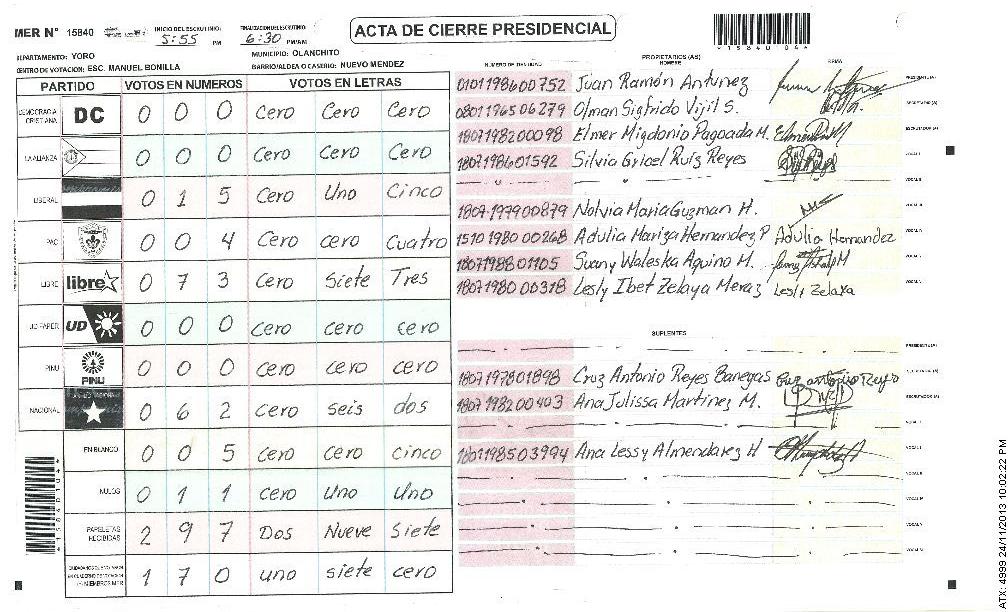 MER N° 15840 INICIO DEL ESCRUTINIO: 5:55 PM FINALIZACION DEL ESCRUTINIO: 6:30 PM/AM
ACTA DE CIERRE PRESIDENCIAL
DEPARTAMENTO: YORO MUNICIPIO: OLANCHITO
CENTRO DE VOTACION: ESC. MANUEL BONILLA BARRIO/ALDEA O CASERIO: NUEVO MENDEZ
PARTIDO VOTOS EN NUMEROS VOTOS EN LETRAS
DEMOCRACIA CRISTIANA DC 0 0 0 Cero Cero Cero
LA ALIANZA 0 0 0 Cero Cero Cero
LIBERAL 0 1 5 Cero Uno Cinco
PAC 0 0 4 Cero cero Cuatro
LIBRE libre 0 7 3 Cero Siete Tres
UD FAPER UD 0 0 0 cero cero cero
PINU PINU 0 0 0 cero cero cero
NACIONAL 0 6 2 cero seis dos
EN BLANCO 0 0 5 cero cero cinco
NULOS 0 1 1 cero Uno Uno
PAPELETAS RECIBIDAS 2 9 7 Dos Nueve Siete
1 7 0 uno siete cero
NUMERO DE IDENTIDAD PROPIETARIOS (AS) NOMBRE FIRMA
0101198600752 Juan Ramón Antunez PRESIDENTE (A)
0801196506279 Olman Sigfrido Vijil S. SECRETARIO (A)
1807198200098 Elmer Migdonio Pagoada M. ESCRUTADOR (A)
1807198601592 Silvia Gricel Ruiz Reyes VOCAL I
1807197900879 Nolvia Maria Guzman H.
1510198000268 Adulia Mariza Hernandez P Adulia Hernandez
1807198801105 Suany Waleska Aquino M.
1807198000318 Lesly Ibet Zelaya Meraz Lesly Zelaya
SUPLENTES
PRESIDENTE (A)
1807197801898 Cruz Antonio Reyes Banegas Cruz antonio Reyes SECRETARIO (A)
1807198200403 Ana Julissa Martinez M. ESCRUTADOR (A)
1801198503994 Ana Lessy Almendarez H
4 1 5 8 4 0 0 4 4
ATX: 4999 24/11/2013 10:02:22 PM